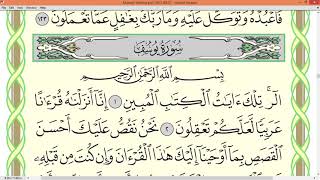 فَٱعْبُدْهُ وَتَوَكَّلْ عَلَيْهِ وَمَا رَبُّكَ بِغَٰفِلٍ عَمَّا تَعْمَلُونَ ١٢٣
سُورَةُ يُوسُفَ
بِسْمِ ٱللَّهِ ٱلرَّحْمَٰنِ ٱلرَّحِيمِ
الٓر تِلْكَ ءَايَٰتُ ٱلْكِتَٰبِ ٱلْمُبِينِ ١ إِنَّآ أَنزَلْنَٰهُ قُرْءَٰنًا
عَرَبِيًّا لَّعَلَّكُمْ تَعْقِلُونَ ٢ نَحْنُ نَقُصُّ عَلَيْكَ أَحْسَنَ
ٱلْقَصَصِ بِمَآ أَوْحَيْنَآ إِلَيْكَ هَٰذَا ٱلْقُرْءَانَ وَإِن كُنتَ مِن قَبْلِهِۦ